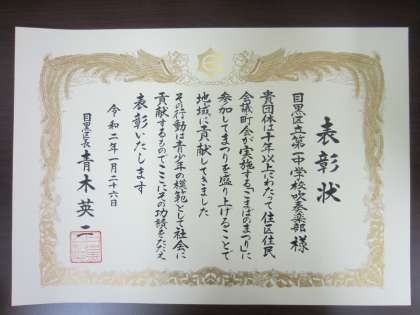 表彰状
目黒区立第一中学校吹奏楽部 様
貴団体は十年以上にわたって住区住民
会議町会が実施する「こまばのまつり」に
参加してまつりを盛り上げることで
地域に貢献してきました
その行動は青少年の模範として社会に
貢献するものでここにその功績をたたえ
表彰いたします
令和二年一月二十六日
目黒区長 青木英二